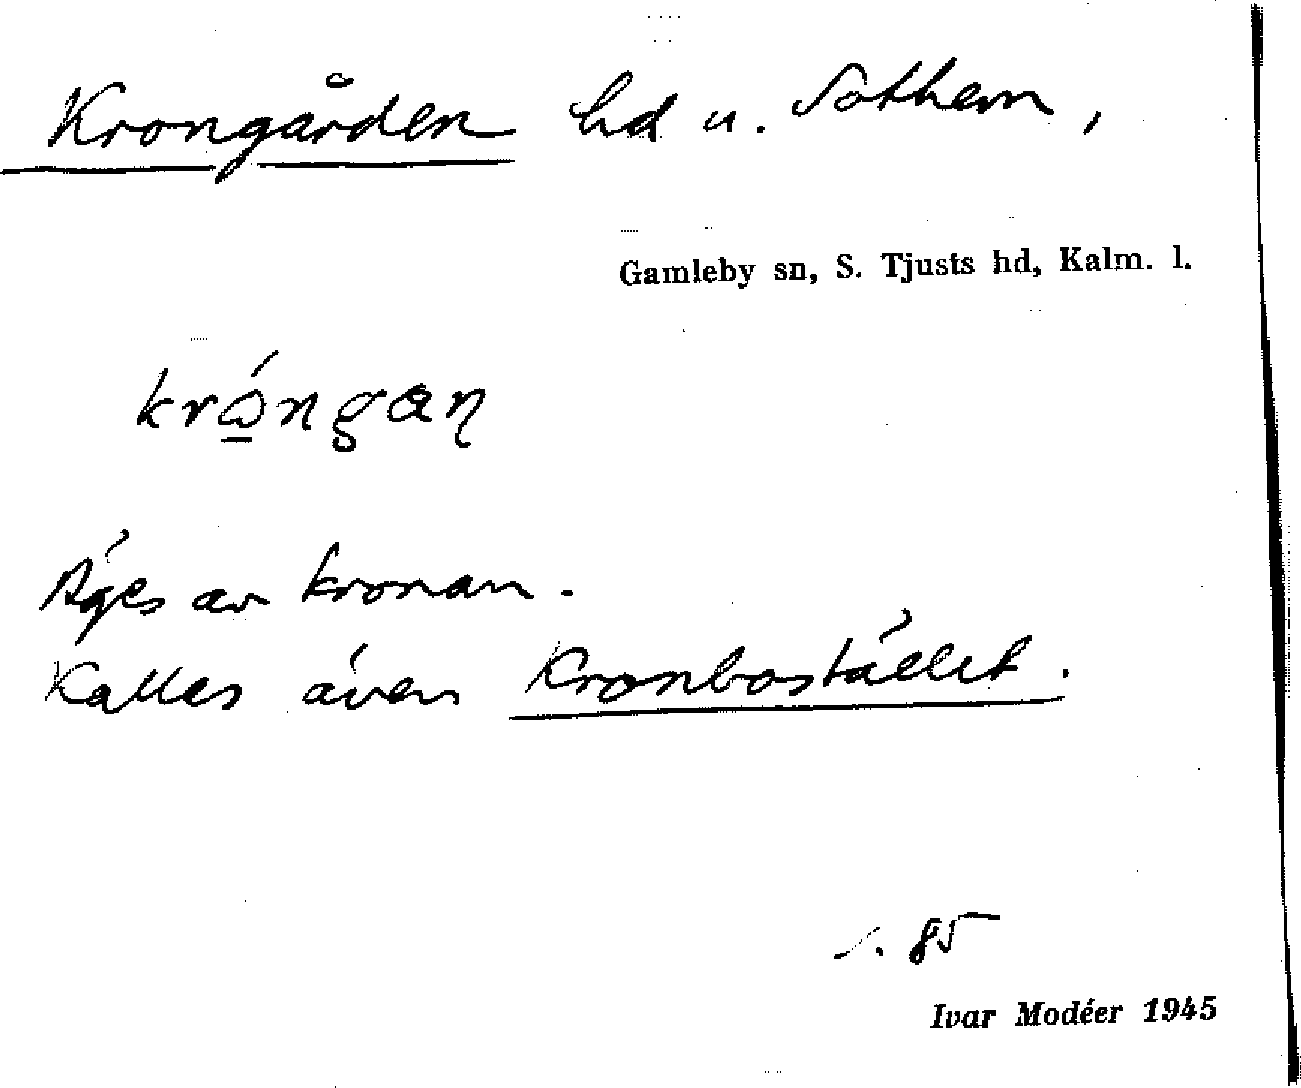 Krongården hd u. Sothem,
Gamleby sn, S. Tjusts hd, Kalm. l.
Äges av kronan.
Kallas även Kronbostället.
s. 85
Ivar Modéer 1945